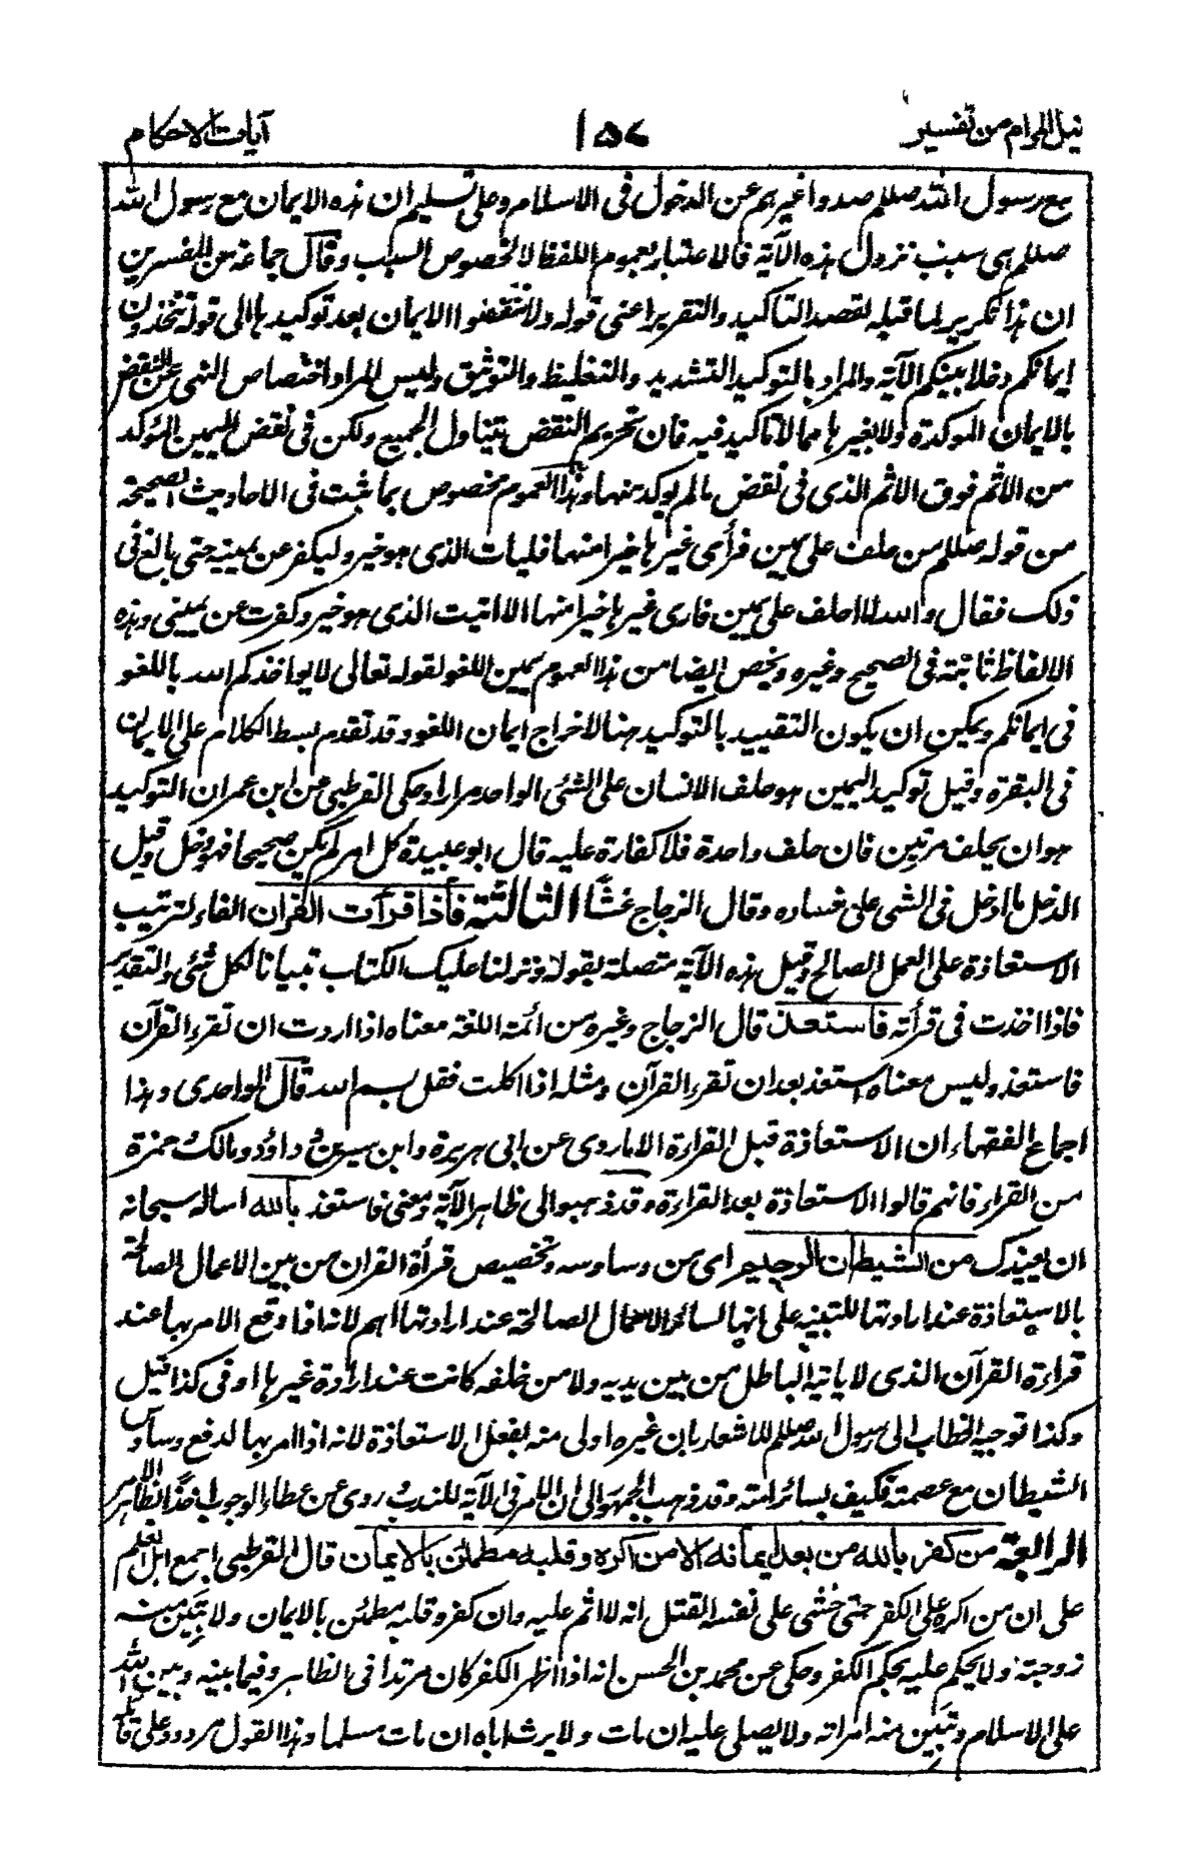 نيل المرام من تفسير
١٥٧
آيات الاحكام
مع رسول الله صللم صدوا غيرهم عن الدخول فى الاسلام وعلى تسليم ان هذه الايمان مع رسول الله
صللم هى سبب نزول هذه الآية فالاعتبار بعموم اللفظ لا لخصوص السبب وقال جماعة من المفسرين
ان هذا تكرير لما قبله لقصد التاكيد والتقرير اعنى قوله ولا تنقضوا الايمان بعد توكيدها الى قوله تتخذون
ايمانكم دخلا بينكم الآية والمراد بالتوكيد التشديد والتغليظ والتوثيق وليس المراد اختصاص النهى عن النقض
بالايمان الموكدة ولا بغيرها مما لا تاكيد فيه فان تحريم النقض يتناول الجميع ولكن فى نقض اليمين المؤكد
من الاثم فوق الاثم الذى فى نقض مالم يوكد منها وهذا العموم مخصوص بما ثبت فى الاحاديث الصحيحة
من قوله صللم من حلف على يمين فرأى غيرها خيرا منها فليات الذى هو خير وليكفر عن يمينه حتى بالغ فى
ذلك فقال والله لا احلف على يمين فارى غيرها خيرا منها الا اتيت الذى هو خير وكفرت عن يمينى وهذه
الالفاظ ثابتة فى الصحيح وغيره ويخص ايضا من هذا العموم يمين اللغو لقوله تعالى لا يواخذكم الله باللغو
فى ايمانكم ويمكن ان يكون التقييد بالتوكيد هنا لاخراج ايمان اللغو وقد تقدم بسط الكلام على الايمان
فى البقرة وقيل توكيد اليمين هو حلف الانسان على الشئ الواحد مرارا وحكى القرطبى عن ابن عمر ان التوكيد
هو ان يحلف مرتين فان حلف واحدة فلا كفارة عليه قال ابو عبيدة كل امر لم يكن صحيحا فهو دخل وقيل
الدخل ما ادخل فى الشى على فساده وقال الزجاج غشا الثالثة فأذا قرأت القران الفاء لترتيب
الاستعاذة على العمل الصالح وقيل هذه الآية متصلة بقوله ونزلنا عليك الكتاب تبيانا لكل شئ والتقدير
فاذا اخذت فى قرأته فاستعذ قال الزجاج وغيره من ائمة اللغة معناه اذا اردت ان تقرء القرآن
فاستعذ وليس معناه استعذ بعد ان تقرء القرآن ومثله اذا اكلت فقل بسم الله قال الواحدى وهذا
اجماع الفقهاء ان الاستعاذة قبل القراءة الا ما روى عن ابى هريرة وابن سيرين وداؤد ومالك وحمزة
من القراء فانهم قالوا الاستعاذة بعد القراءة وقد ذهبوا الى ظاهر الآية ومعنى فاستعذ بالله اساله سبحانه
ان يعيذك من الشيطان الرجيم اى من وساوسه وتخصيص قرأة القران من بين الاعمال الصالحة
بالاستعاذة عند ارادتها للتنبيه على انها لسائر الاعمال الصالحة عند ارادتها اهم لانه اذا وقع الامر بها عند
قراءة القرآن الذى لا ياتيه الباطل من بين يديه ولا من خلفه كانت عند ارادة غيرها اوفى كذا قيل
وكذا توجيه الخطاب الى رسول الله صللم للاشعار بان غيره اولى منه بفعل الاستعاذة لانه اذا امر بها لدفع وساوس
الشيطان مع عصمته فكيف بسائر امته وقد ذهب الجمهور الى ان الامر فى الآية للندب وروى عن عطاء الوجوب اخذا بظاهر الامر
الرابعة من كفر بالله من بعد ايمانه الا من اكره وقلبه مطمئن بالايمان قال القرطبى اجمع اهل العلم
على ان من اكره على الكفر حتى خشى على نفسه القتل انه لا اثم عليه وان كفر وقلبه مطمئن بالايمان ولا تبين منه
زوجته ولا يحكم عليه بحكم الكفر وحكى عن محمد بن الحسن انه اذا اظهر الكفر كان مرتدا فى الظاهر وفيما بينه وبين الله
على الاسلام وتبين منه امراته ولا يصلى عليه ان مات ولا يرث اباه ان مات مسلما وهذا القول مردود على قائله